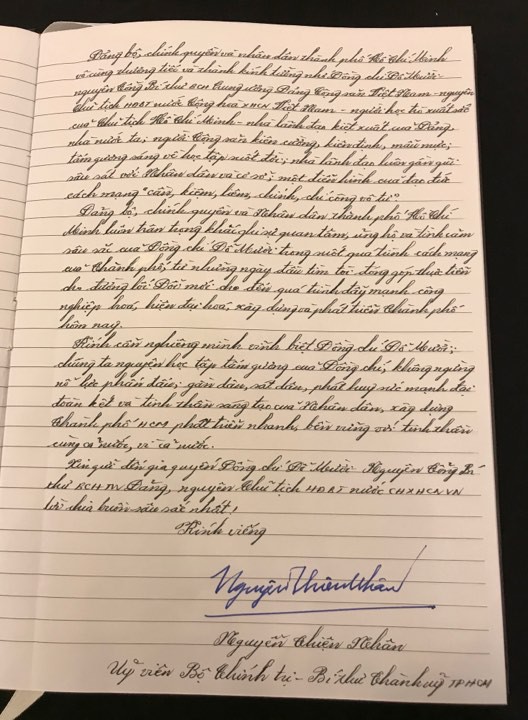 Đảng bộ, chính quyền và nhân dân thành phố Hồ Chí Minh
vô cùng thương tiếc và thành kính tưởng nhớ Đồng chí Đỗ Mười -
nguyên Tổng Bí thư BCH Trung ương Đảng Cộng sản Việt Nam - nguyên
Chủ tịch HĐBT nước Cộng hoà XHCN Việt Nam - người học trò xuất sắc
của Chủ tịch Hồ Chí Minh - nhà lãnh đạo kiệt xuất của Đảng,
nhà nước ta; người Cộng sản kiên cường, kiên định, mẫu mực;
tấm gương sáng về học tập suốt đời; nhà lãnh đạo luôn gần gũi
sâu sát với Nhân dân và cơ sở; một điển hình của đạo đức
cách mạng "cần, kiệm, liêm, chính, chí công vô tư".
Đảng bộ, chính quyền và Nhân dân thành phố Hồ Chí
Minh luôn trân trọng khắc ghi sự quan tâm, ủng hộ và tình cảm
sâu sắc của Đồng chí Đỗ Mười trong suốt quá trình cách mạng
của Thành phố, từ những ngày đầu tìm tòi đóng góp thực tiễn
cho đường lối Đổi mới cho đến quá trình đẩy mạnh công
nghiệp hoá, hiện đại hoá, xây dựng và phát triển Thành phố
hôm nay.
Kính cẩn nghiêng mình vĩnh biệt Đồng chí Đỗ Mười;
chúng ta nguyện học tập tấm gương của Đồng chí, không ngừng
nỗ lực phấn đấu; gần dân, sát dân, phát huy sức mạnh đại
đoàn kết và tinh thần sáng tạo của Nhân dân, xây dựng
Thành phố HCM phát triển nhanh, bền vững với tinh thần
cùng cả nước, vì cả nước.
Xin gửi đến gia quyến Đồng chí Đỗ Mười - Nguyên Tổng Bí
thư BCHTW Đảng, nguyên Chủ tịch HĐBT nước CHXHCNVN
lời chia buồn sâu sắc nhất!
Kính viếng
Nguyễn Thiện Nhân
Nguyễn Thiện Nhân
Uỷ viên Bộ Chính trị - Bí thư Thành uỷ TP.HCM